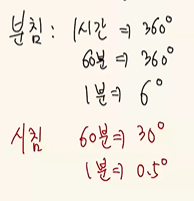 분침 : 1시간 ⇒ 360°
60분 ⇒ 360°
1분 ⇒ 6°
시침 60분 ⇒ 30°
1분 ⇒ 0.5°